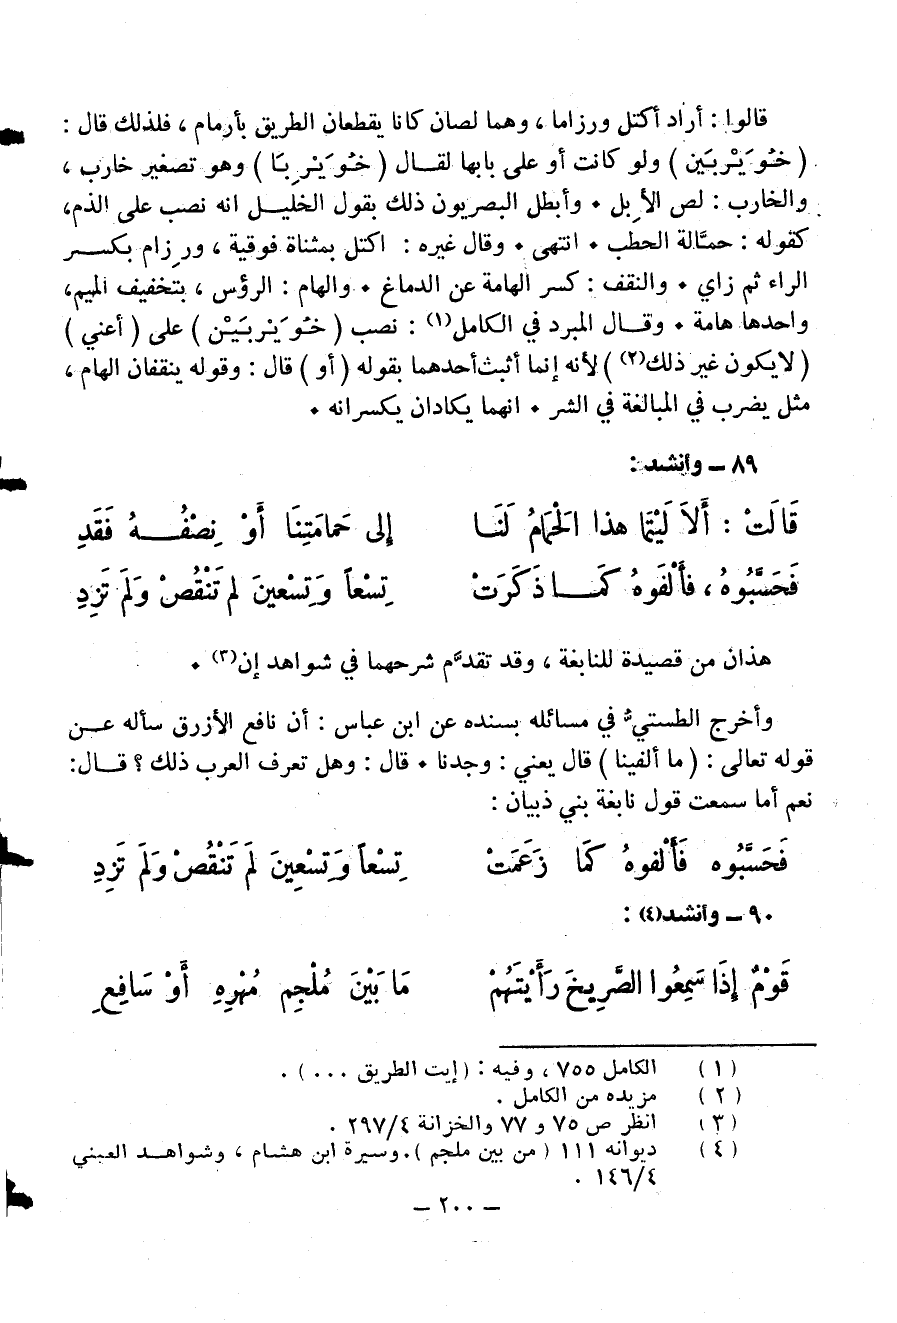 قالوا : أراد أكتل ورزاما ، وهما لصان كانا يقطعان الطريق بأرمام ، فلذلك قال :
( خُوَيْرِبَيْن ) ولو كانت أو على بابها لقال ( خُوَيْرِبَا ) وهو تصغير خارب ،
والخارب : لص الأبل • وأبطل البصريون ذلك بقول الخليل انه نصب على الذم،
كقوله : حمّالة الحطب • انتهى • وقال غيره : اكتل بمثناة فوقية ، ورِزام بكسر
الراء ثم زاي • والنقف : كسر الهامة عن الدماغ • والهام : الرؤس ، بتخفيف الميم،
واحدها هامة • وقال المبرد في الكامل(١) : نصب ( خُوَيْرِبَيْن ) على ( أعني )
( لايكون غير ذلك(٢) ) لأنه إنما أثبت أحدهما بقوله ( أو ) قال : وقوله ينقفان الهام ،
مثل يضرب في المبالغة في الشر • انهما يكادان يكسرانه •
٨٩ – وأنشد :
قَالَتْ : أَلاَ لَيْتَمَا هذا الْحَمَامُ لَنَا إلى حَمَامَتِنَا أَوْ نِصْفُـهُ فَقَدِ
فَحَسَّبُوهُ ، فأَلْفَوهُ كَمَـا ذَكَرَتْ تِسْعاً وَتِسْعينَ لم تَنْقُصْ وَلَم تَزِدِ
هذان من قصيدة للنابغة ، وقد تقدَّم شرحهما في شواهد إن(٣) •
وأخرج الطستيُّ في مسائله بسنده عن ابن عباس : أن نافع الأزرق سأله عن
قوله تعالى : ( ما ألفينا ) قال يعني : وجدنا • قال : وهل تعرف العرب ذلك ؟ قال:
نعم أما سمعت قول نابغة بني ذبيان :
فَحَسَّبُوه فَأَلْفوهُ كَمَا زَعَمَتْ تِسْعاً وَتِسْعِينَ لَم تَنْقُصْ وَلَم تَزِدِ
٩٠ – وأنشد(٤) :
قَوْمٌ إِذَا سَمِعُوا الصَّرِيخَ رَأَيْتَهُمْ مَا بَيْنَ مُلْجِمِ مُهْرِهِ أَوْ سَافِعِ
(١) الكامل ٧٥٥ ، وفيه : (إيت الطريق ...) .
(٢) مزيده من الكامل .
(٣) انظر ص ٧٥ و ٧٧ والخزانة ٢٩٧/٤ .
(٤) ديوانه ١١١ ( من بين ملجم ). وسيرة ابن هشام ، وشواهد العيني
١٤٦/٤ .
– ٢٠٠ –